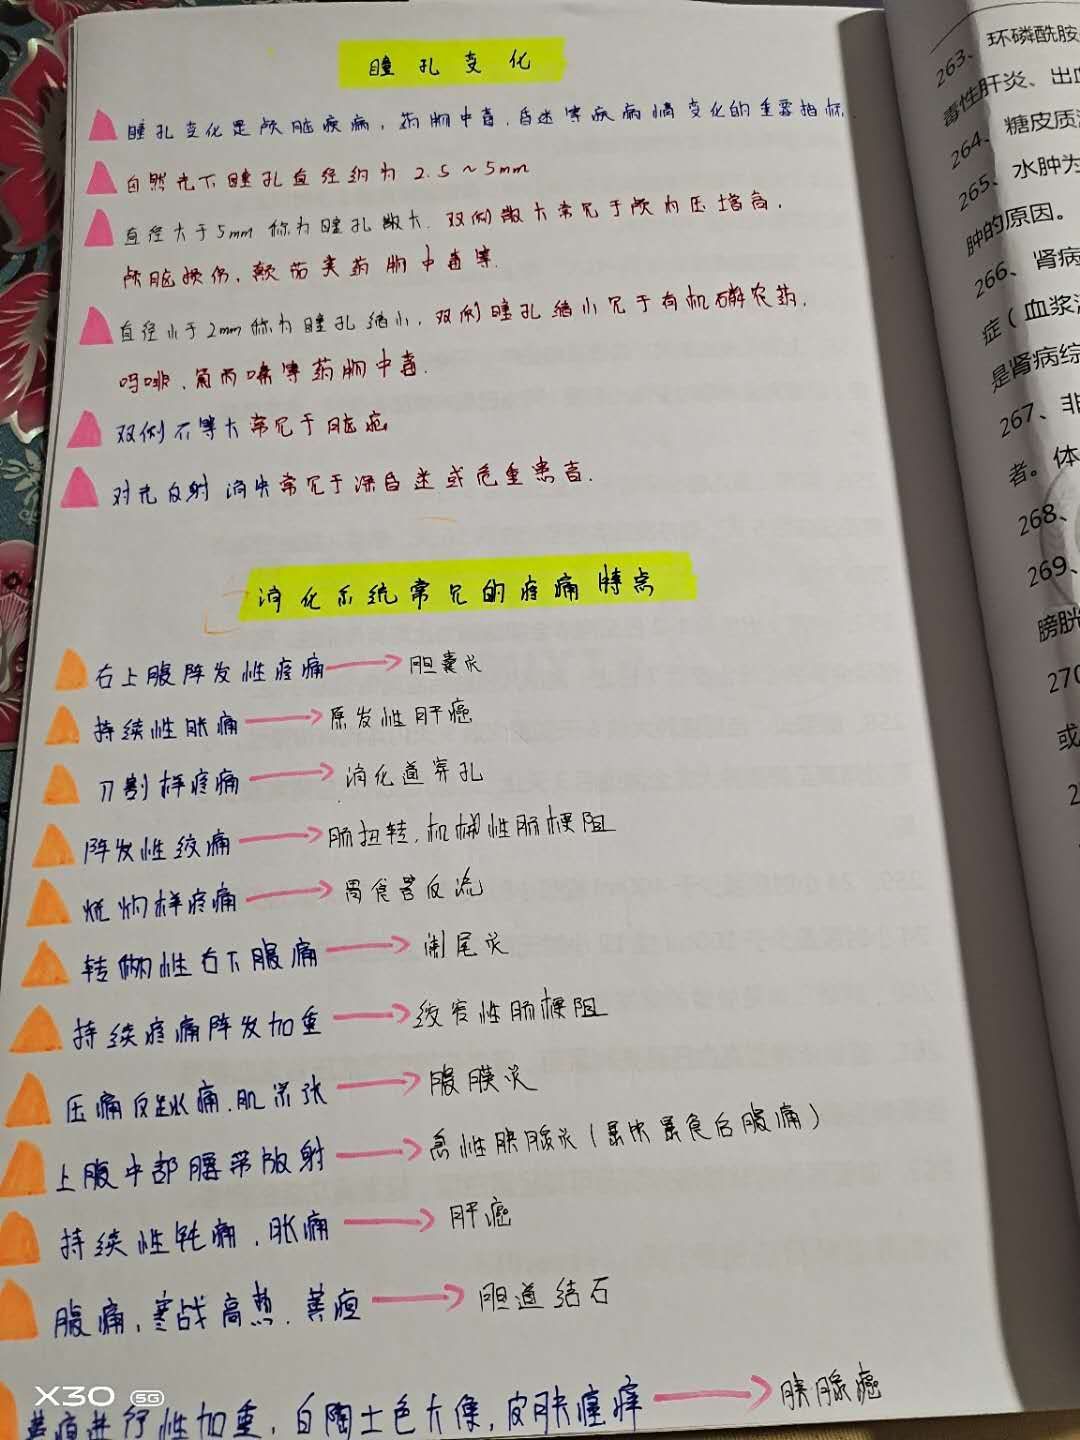 瞳孔变化
瞳孔变化是颅脑疾病，药物中毒，昏迷等疾病病情变化的重要指标
自然光下瞳孔直径约为 2.5~5mm
直径大于5mm 称为瞳孔散大. 双侧散大常见于颅内压增高，
颅脑损伤，颠茄类药物中毒等.
直径小于2mm 称为瞳孔缩小，双侧瞳孔缩小见于有机磷农药，
吗啡、氯丙嗪等药物中毒.
双侧不等大常见于脑疝
对光反射消失常见于深昏迷或危重患者.
消化系统常见的疼痛特点
右上腹阵发性疼痛→胆囊炎
持续性胀痛→原发性肝癌
刀割样疼痛→消化道穿孔
阵发性绞痛→肠扭转，机械性肠梗阻
烧灼样疼痛→胃食管反流
转移性右下腹痛→阑尾炎
持续疼痛阵发加重→绞窄性肠梗阻
压痛反跳痛.肌紧张→腹膜炎
上腹中部腰带放射→急性胰腺炎（暴饮暴食后腹痛）
持续性钝痛，胀痛→肝癌
腹痛，寒战高热.黄疸→胆道结石
黄疸进行性加重，白陶土色大便，皮肤瘙痒→胰腺癌
X30 5G
263、环磷酰胺
毒性肝炎、出血
264、糖皮质
265、水肿为
肿的原因。
266、肾病
症（血浆
是肾病综
267、非
者。体
268、
269、
膀胱
270
或
2